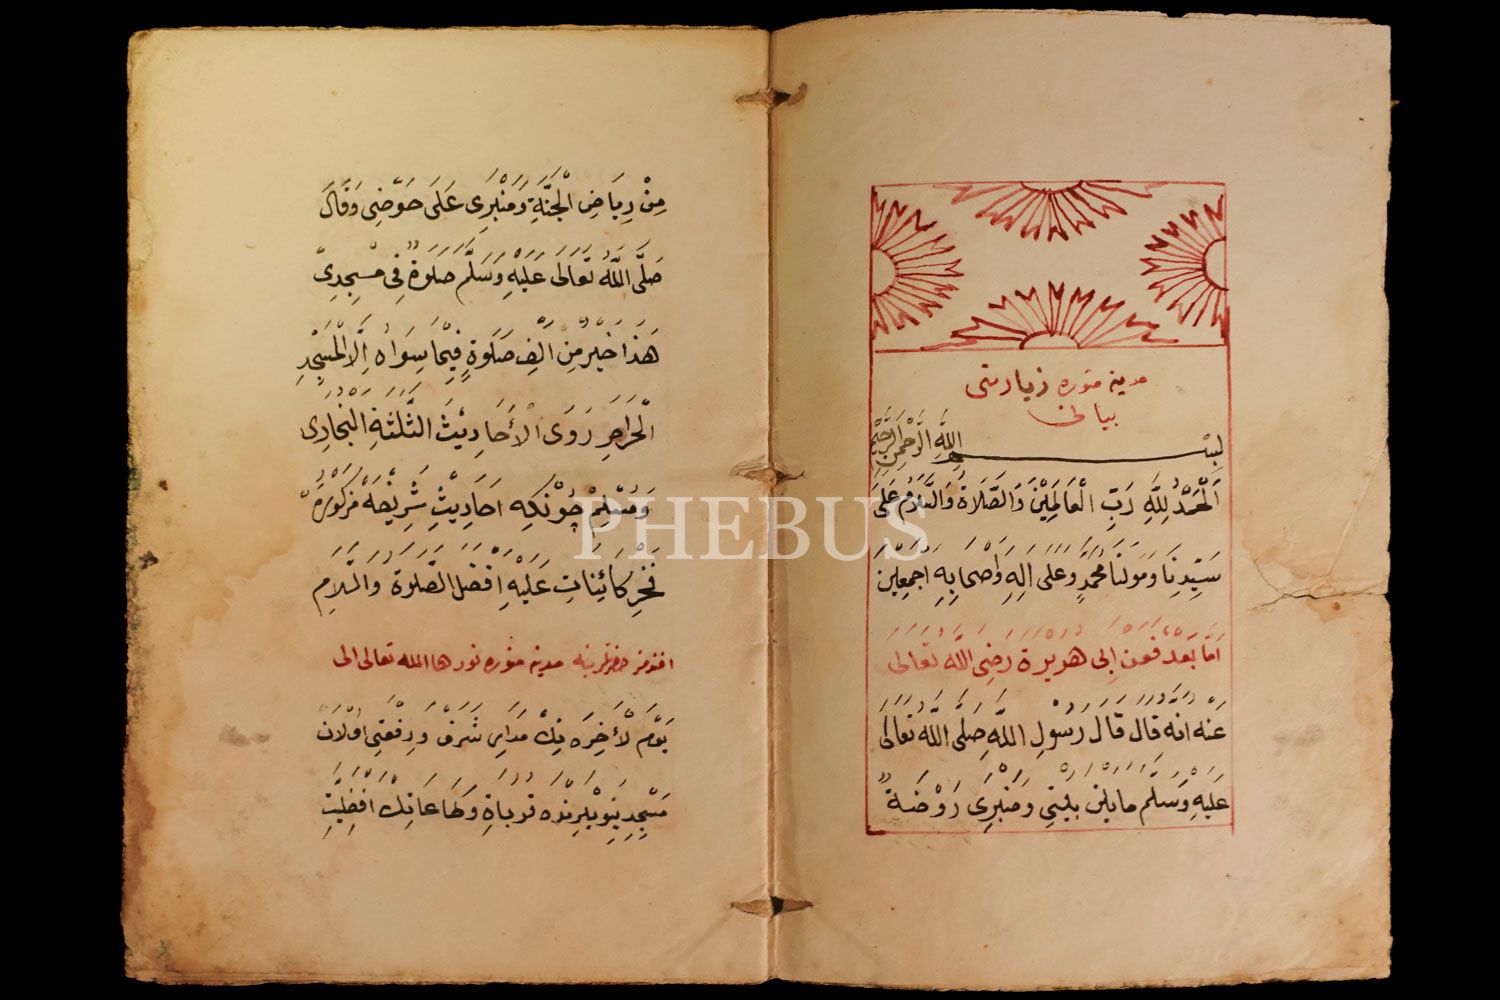 مدينه منوره زيارتى
بيانى
بِسْــــمِ اللَّهِ الرَّحْمَنِ الرَّحِيمِ
اَلْحَمْدُ لِلَّهِ رَبِّ الْعَالَمِيْنَ وَالصَّلَاةُ وَالسَّلَامُ عَلَى
سَيِّدِنَا وَمَوْلَنَا مُحَمَّدٍ وَعَلَى اٰلِهِ وَاَصْحَابِهِ اَجْمَعِيْنَ
اَمَّا بَعْدُ فَعَنْ اَبِى هُرَيْرَةَ رَضِىَ اللَّهُ تَعَالَى
عَنْهُ اَنَّهُ قَالَ قَالَ رَسُولُ اللَّهِ صَلَّى اللَّهُ تَعَالَى
عَلَيْهِ وَسَلَّمَ مَا بَيْنَ بَيْتِى وَمِنْبَرِى رَوْضَةٌ
مِنْ رِيَاضِ الْجَنَّةِ وَمِنْبَرِى عَلَى حَوْضِى وَقَالَ
صَلَّى اللَّهُ تَعَالَى عَلَيْهِ وَسَلَّمَ صَلَوةٌ فِى مَسْجِدِى
هَذَا خَيْرٌ مِنْ اَلْفِ صَلَوةٍ فِيمَا سِوَاهُ اِلَّا الْمَسْجِدِ
الْحَرَامِ رَوَى الْأَحَادِيْثَ الثَّلٰثَةِ الْبُخَارِى
وَمُسْلِمْ چُوْنْكِه اَحَادِيْثِ شَرِيْفَهْ مَزْكُوْرَهْ
فَخْرِ كَائِنَاتِ عَلَيْهِ اَفْضَلُ الصَّلَوةُ وَالسَّلَامِ
افندمز حضرتلرينه مدينه منوره نورها الله تعالى الى
يَوْمَ الْأَخِرَه نِكْ مَدَارِ شَرَفْ وَرِفْعَتِى اُوْلَانْ
مَسْجِدِ نَبَوِيْلَرِنْدَه
PHEBUS